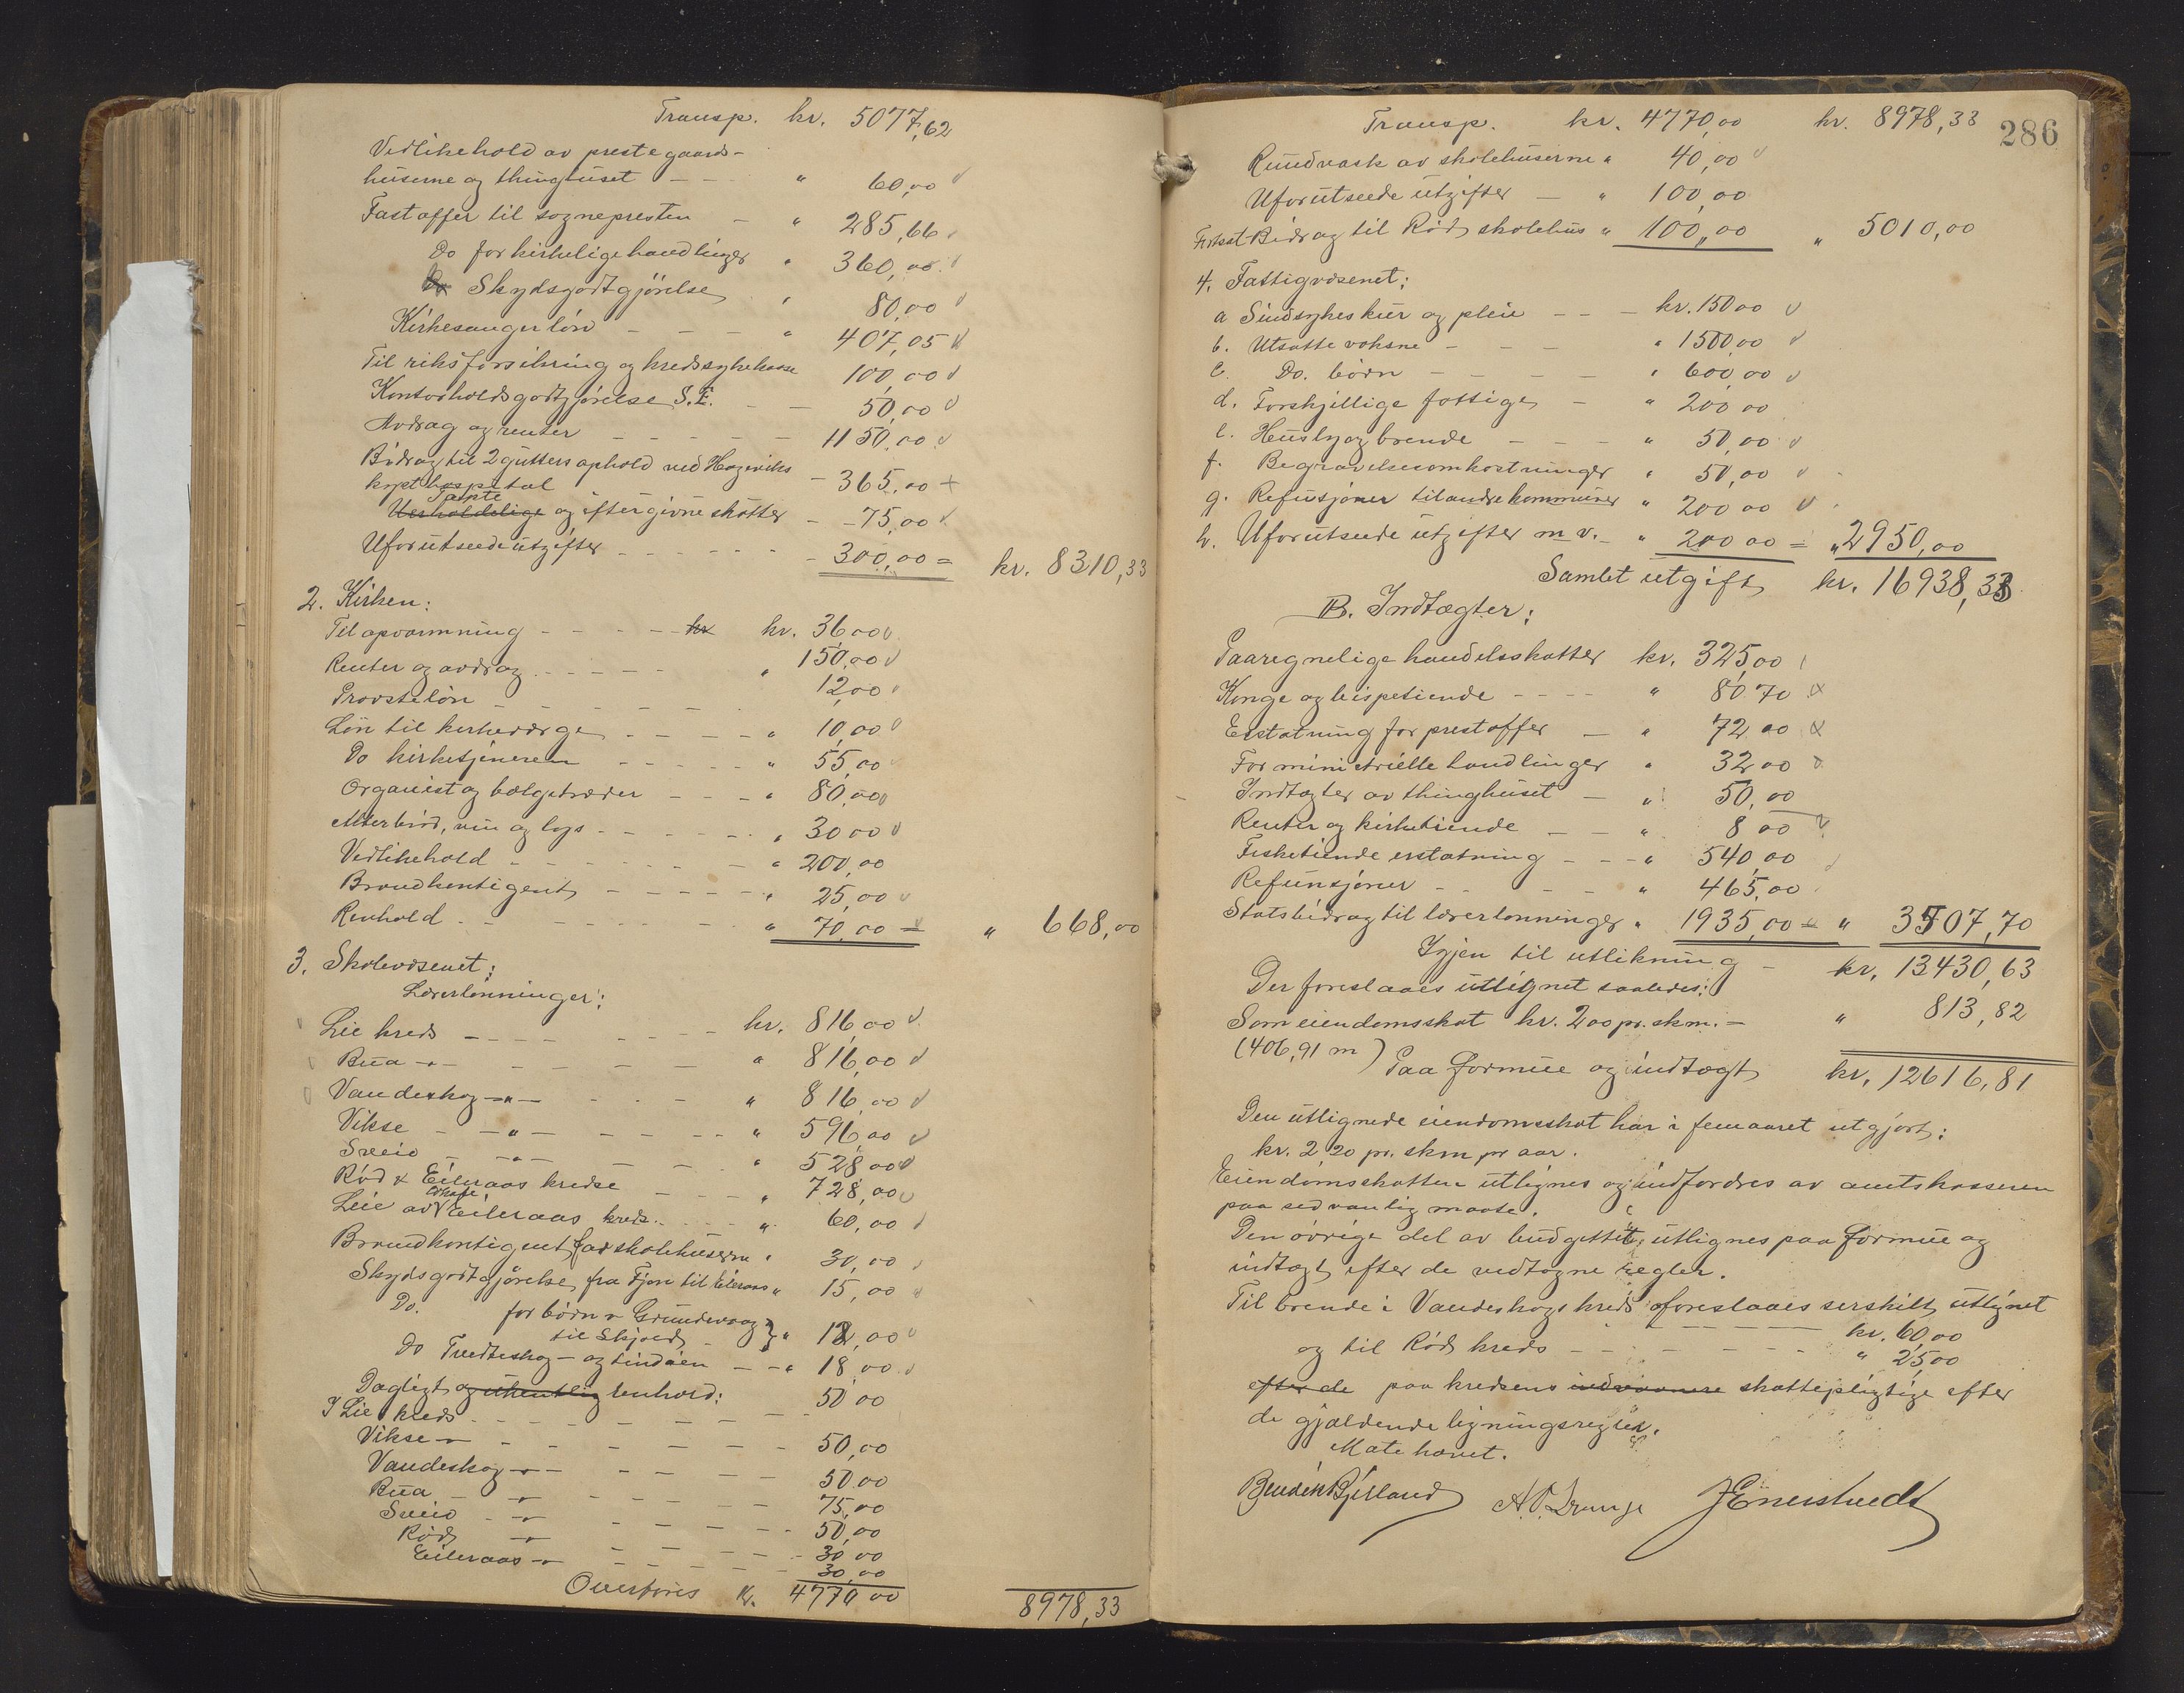 Transp. kr. 5077,62
Vedlikehold av prestegaards-
huserne og thinghuset — " 60,00
Fast offer til sognepresten — " 285,66
Do for kirkelige handlinger " 360,00
Skydsgodtgjörelse " 80,00
Kirkesanger lön — — — " 407,05
Til riksforsikring og kredssykekasse 100,00
Kontorholdsgodtgjörelse S.E. — — 50,00
Avdrag og renter — — — — — 1150,00
Bidrag til 2 gutters ophold ved Hageviks
kyst hospital — 365,00
Tapte
Uerholdelige og eftergivne skatter — 75,00
Uforutseede utgifter — — — 300,00 = kr. 8310,33
2. Kirken:
Til opvarmning — — — — kr kr. 36,00
Renter og avdrag — — — " 150,00
Provstelön — — — — — 12,00
Lön til kirkeværge — — — — " 10,00
Do kirketjeneren — — — — — " 55,00
Organist og bælgetræder — — — " 80,00
Alterbröd, vin og lys — — — — " 30,00
Vedlikehold — — — — — — " 200,00
Brandkontigent — — — — — " 25,00
Renhold — — — — — — " 70,00 = " 668,00
3. Skolevæsenet:
Lærerlönninger:
Lie kreds — — — — — — kr. 816,00
Bua —"— — — — — — " 816,00
Vandeskog —"— — — — " 816,00
Vikse — —"— — — — — " 596,00
Sveio — —"— — — — " 528,00
Röd & Eileraas kredse — — — " 728,00
Leie av Eileraas kreds — — — " 60,00
Brandkontigent for skolehuserne " 30,00
Skydsgodtgjörelse fra Fjon til Eileraas " 15,00
Do. for börn
til Skjold " 12,00
Do Tvedteskog — og Lindöen — — " 18,00
Dagligt og ukentlig renhold:
I Lie kreds — — — — — — — 50,00
Vikse —"— — — — — — — 50,00
Vandeskog —"— — — — — 50,00
Bua — —"— — — — — 75,00
Sveio — —"— — — — — 50,00
Röd —"— — — — — 30,00
Eileraas —"— — — — — 30,00
Overföres kr. 4770,00 8978,33
286
Transp. kr. 4770,00 kr. 8978,33
Rundvask av skolehuserne " 40,00
Uforutseede utgifter — " 100,00
Fortsat Bidrag til Röds skolehus " 100,00 " 5010,00
4. Fattigvæsenet:
a Sindsykes kur og pleie — — — kr. 150 00
b. Utsatte voksne — — — — " 1500,00
c. Do. börn — — — — — " 600,00
d. Forskjellige fattige — — " 200 00
e. Husly og brende — — — — " 50,00
f. Begravelsesomkostninger " 50,00
g. Refusjoner til andre kommuner " 200 00
h. Uforutseede utgifter m.v. — " 200 00 = " 2950,00
Samlet utgift kr. 16938,33
B. Indtægter:
Paaregnelige handelsskatter kr. 325,00
Konge og bispetiende — — — — " 80.70
Erstatning for prestoffer — " 72 00
For ministrielle handlinger " 32 00
Indtægter av thinghuset — " 50,00
Renter og kirketiende — — " 8 00
Fisketiende erstatning — — — " 540,00
Refunsjoner — — — — " 465,00
Statsbidrag til lærerlönninger " 1935,00 = " 3507,70
Igjen til utlikning — kr. 13430,63
Der foreslaaes utlignet saaledes:
Som eiendomsskat kr. 2,00 pr. skm. — " 813,82
(406,91 m) Paa formue og indtægt kr. 12616,81
Den utlignede eiendomsskat har i femaaret utgjort:
kr. 2,20 pr. skm pr aar.
Eiendomsskatten utlignes og indfordres av amtskasseren
paa sedvanlig maate.
Den övrige del av budgettet utlignes paa formue og
indtægt efter de vedtagne regler.
Til brende i Vandeskogs kreds foreslaaes serskilt utlignet
— — — — kr. 60,00
og til Röds kreds — — — — — — " 25,00
efter de paa kredsens indvaanere skattepligtige efter
de gjældende ligningsregler.
Möte hævet.